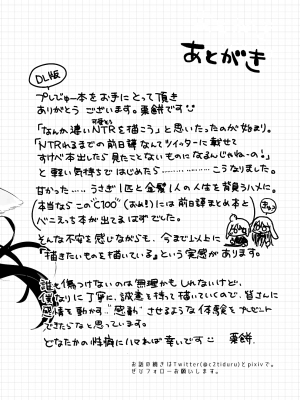 あとがき
DL版
プレビュー本をお手にとって頂き
ありがとうございます。栗餅です
「なんか濃いNTRを描こう」と思いたったのが始まり。
「NTRれるまでの前日譚なんてツイッターに載せて
すけべ本出したら見たことないものになるんじゃねーの！」
と軽い気持ちではじめたら………………こうなりました。
甘かった……うさぎ1匹と金髪1人の人生を背負うハメに。
本当ならこの"C100"（おめ！）には前日譚まとめ本と
べニスっも本が出てるはずでした。
そんな不安を感じながらも、今まで以上に
「描きたいものを描いている」という実感があります。
誰も傷つけないのは無理かもしれないけど、
僕なりに丁寧に、誠意を持って描いていくので、皆さんに
感情を動かす"感動"させるような体験をプレゼント
できたらなと思っています。
どなたかの性癖にハマれば幸いです 栗餅.
お話の続きはTwitter(@c2tiduru)とpixivで。
ぜひフォローお願いします。